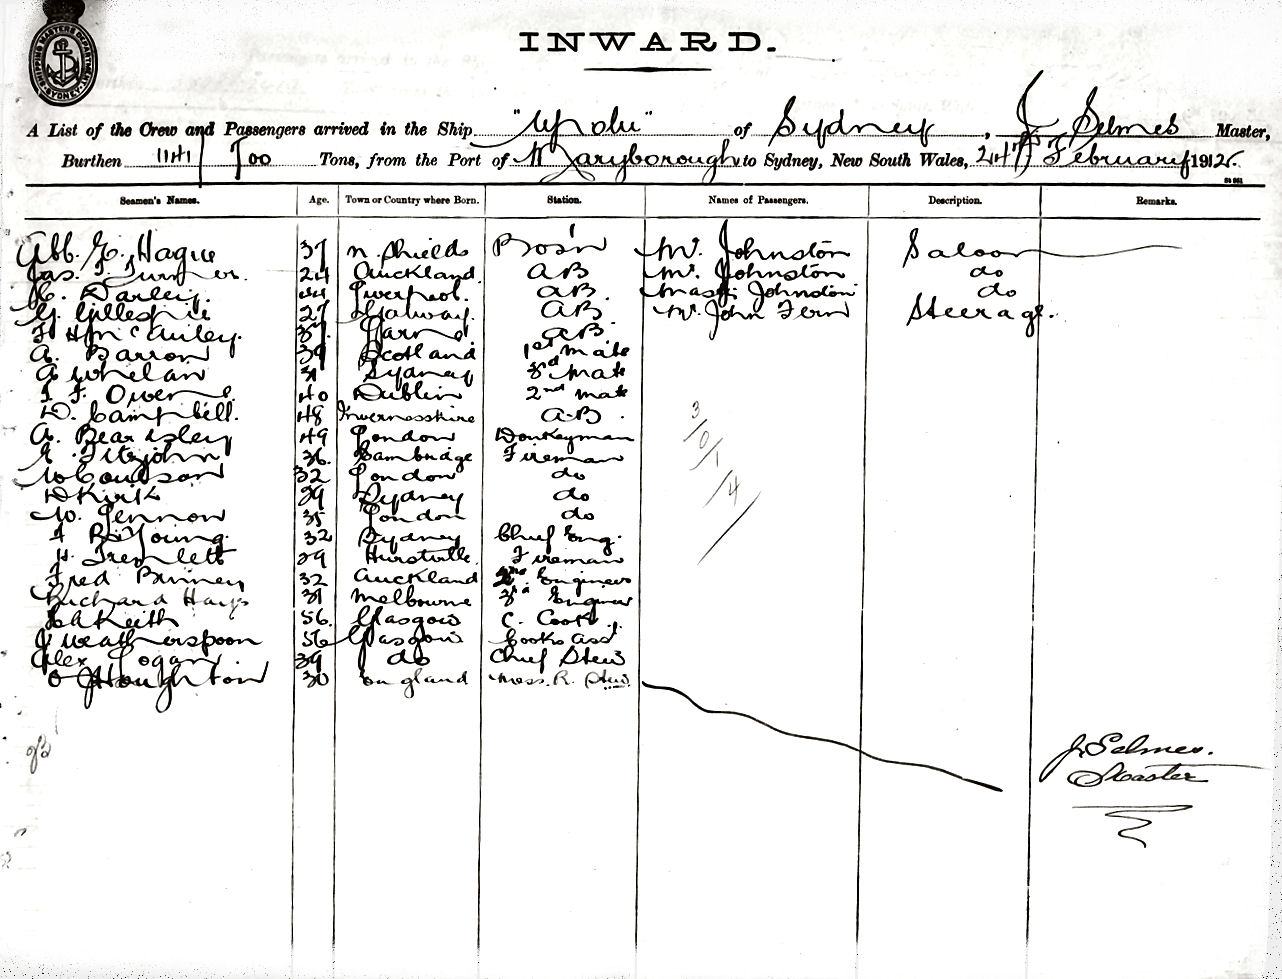 SHIPPING MASTERS DEPARTMENT SYDNEY
INWARD.
A List of the Crew and Passengers arrived in the Ship "Upolu" of Sydney, J Selmes Master,
Burthen 1141/700 Tons, from the Port of Maryborough to Sydney, New South Wales, 24th February 1912.
Seamen's Names. Age. Town or Country where Born. Station. Names of Passengers. Description. Remarks.
Abb. G. Hague 37 N. Shields Bos'n Mr. Johnston Saloon
Jas. T. Turner. 24 Auckland AB Mr. Johnston do
H. Darley. 44 Liverpool. AB. Mast. Johnston do
G. Gillespie 27 Galway. AB Mr. John Fern Steerage.
F Hy McAuley. 37 Larne AB.
A. Barron 39 Scotland 1st Mate
A Whelan 31 Sydney 3rd Mate
T. F. Owens. 40 Dublin 2nd Mate
D. Campbell. 48 Invernesshire A.B.
A. Beardsley 49 London Donkeyman
E. Fitzjohn 36. Cambridge Fireman
W Coulson 32 London do
D Kirk 29 Sydney do
W. Lennon 35 London do
A R. Young. 32 Sydney Chief Eng.
H. Tremlett 29 Hurstville. Fireman
Fred Binney 32 Auckland 2nd. Engineer
Richard Hays 31 Melbourne 3rd Engineer
Keith 56. Glasgow C. Cook.
J Weatherspoon 56 Glasgow Cooks Asst
Alex Logan 39 do Chief Stew
O Houghton 30 England Mess. R. Stew.
3/0/1/4/
J. Selmes.
Master